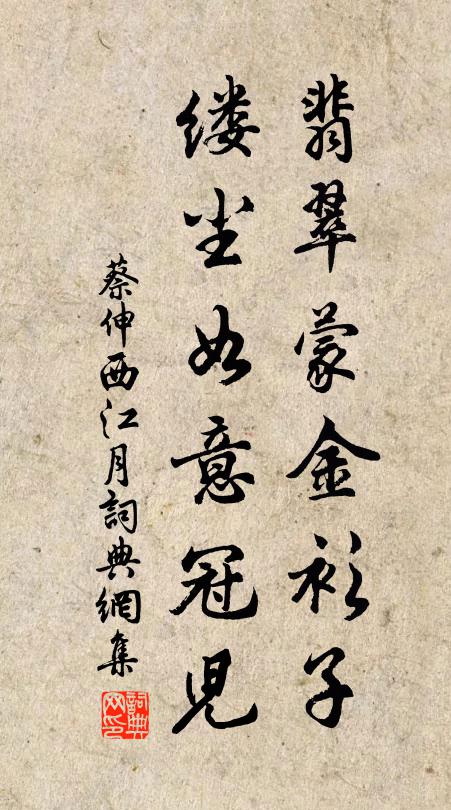 翡翠蒙金衫子
缕尘如意冠儿
蔡伸西江月詞典網集
詞典网印